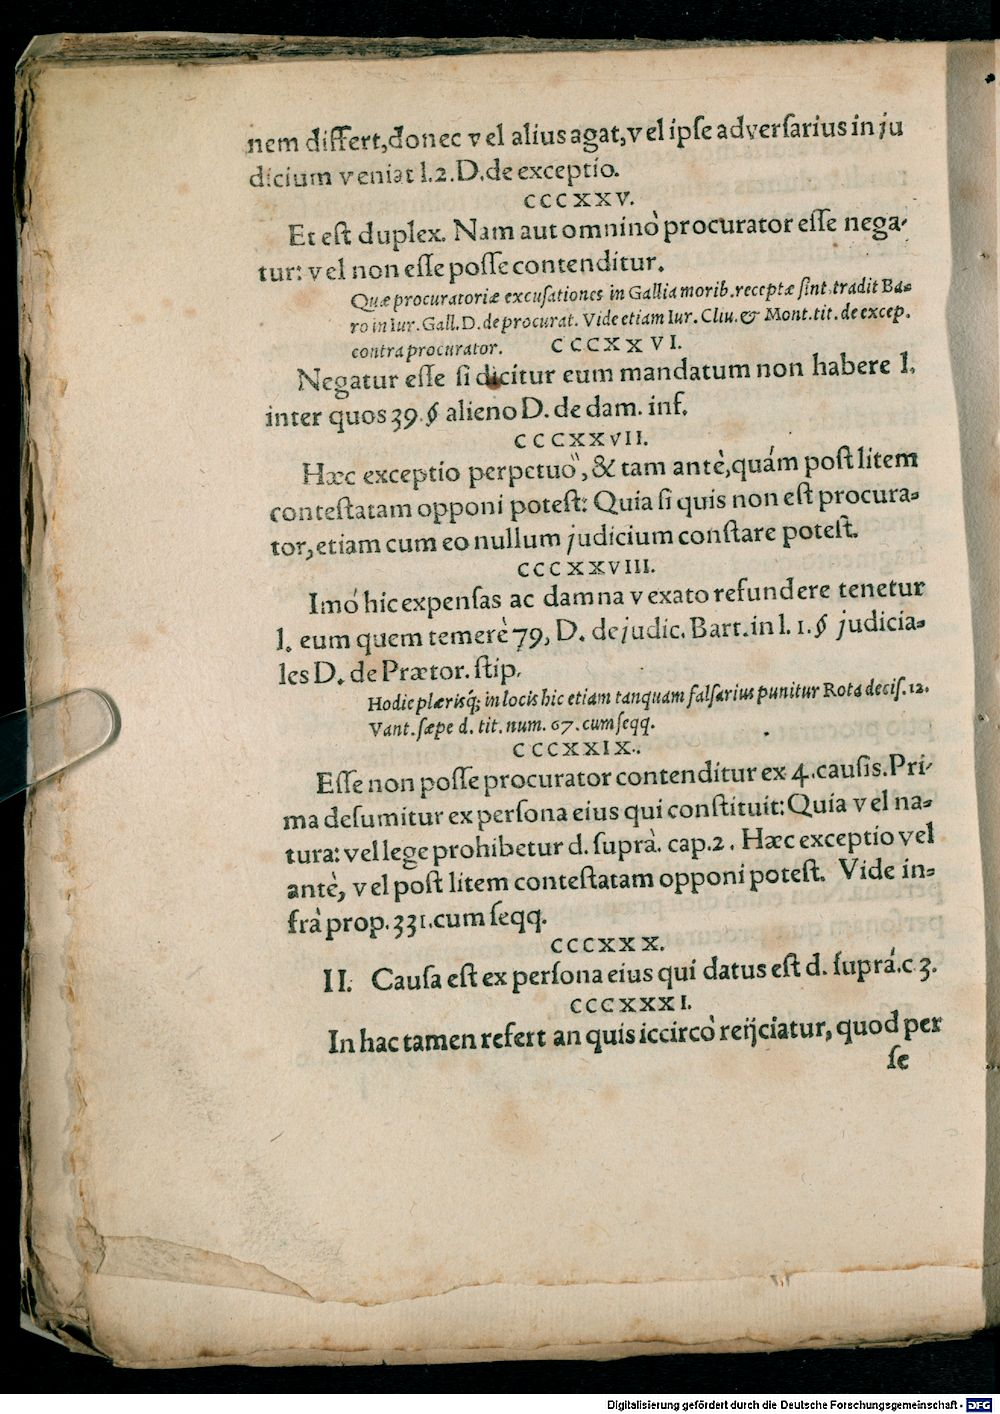 nem differt,donec vel alius agat,vel ipse adversarius in ju
dicium veniat l.2.D.de exceptio.
CCCXXV.
Et est duplex. Nam aut omninò procurator esse nega-
tur: vel non esse posse contenditur.
Quæ procuratoriæ excusationes in Gallia morib.receptæ sint,tradit Ba=
ro in Iur. Gall.D.de procurat. Vide etiam Iur. Cliu.& Mont.tit. de excep.
contra procurator.
CCCXXVI.
Negatur esse si dicitur eum mandatum non habere l.
inter quos 39.§ alieno D. de dam. inf.
CCCXXVII.
Hæc exceptio perpetuò, & tam antè,quám post litem
contestatam opponi potest: Quia si quis non est procura=
tor,etiam cum eo nullum judicium constare potest.
CCCXXVIII.
Imó hic expensas ac damna vexato refundere tenetur
l. eum quem temerè 79, D. de judic. Bart.in l. 1.§ judicia=
les D. de Prætor. stip.
Hodie plærisq; in locis hic etiam tanquam falsarius punitur Rota decis.12.
Vant.sæpe d. tit. num. 67.cum seqq.
CCCXXIX.
Esse non posse procurator contenditur ex 4.causis.Pri-
ma desumitur ex persona eius qui constituit:Quia vel na=
tura: vel lege prohibetur d. suprà. cap.2. Hæc exceptio vel
antè, vel post litem contestatam opponi potest. Vide in=
frà prop.331.cum seqq.
CCCXXX.
II. Causa est ex persona eius qui datus est d. suprá.c 3.
CCCXXXI.
In hac tamen refert an quis iccircò reijciatur, quod per
se
Digitalisierung gefördert durch die Deutsche Forschungsgemeinschaft - DFG